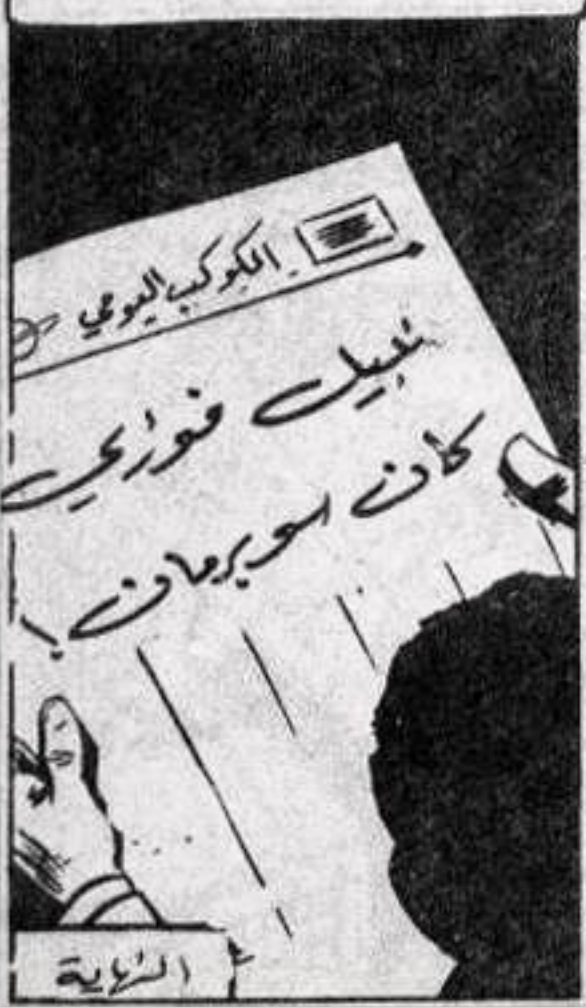 الكوكب اليومي
نبيل فوزي
كان سوبرمان!
النهاية